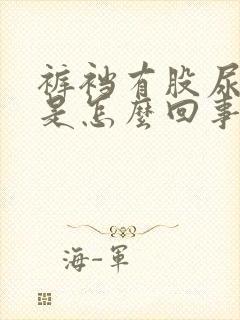 裤裆有股尿
是怎麽回事
海-軍